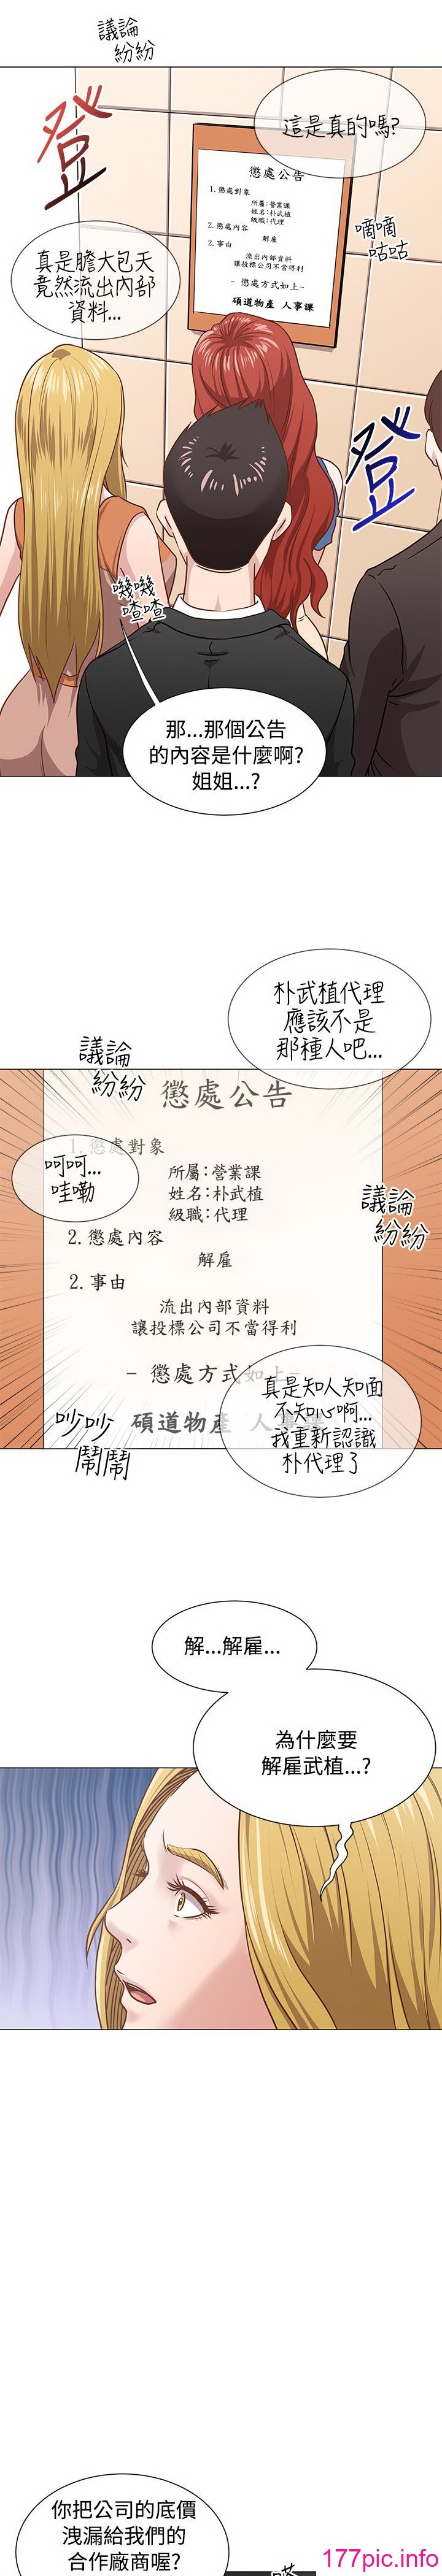 議論
紛紛
登
這是真的嗎?
懲處公告
1.懲處對象
所屬:營業課
姓名:朴武植
級職:代理
2.懲處內容
解雇
2.事由
流出內部資料
讓投標公司不當得利
- 懲處方式如上-
碩道物產 人事課
嘀嘀
咕咕
真是膽大包天
竟然流出內部
資料...
登
嘰嘰
喳喳
那...那個公告
的內容是什麼啊?
姐姐...?
朴武植代理
應該不是
那種人吧...
議論
紛紛
懲處公告
1.懲處對象
呵呵...
哇嘞
所屬:營業課
姓名:朴武植
級職:代理
議論
紛紛
2.懲處內容
解雇
2.事由
流出內部資料
讓投標公司不當得利
- 懲處方式如上-
真是知人知面
不知心啊...
我重新認識
朴代理了
吵吵
鬧鬧
碩道物產 人事課
解...解雇...
為什麼要
解雇武植...?
你把公司的底價
洩漏給我們的
合作廠商喔?
177pic.info